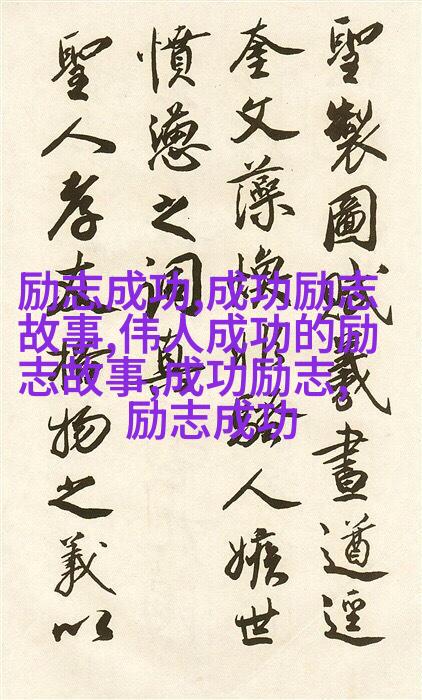 聖製圖賦羲畫遒逕
奎文藻煥非騷人嫉世
憤懣之詞真
聖人孝物之義以
励志成功,成功励志
故事,伟人成功的励
志故事,成功励志,
励志成功